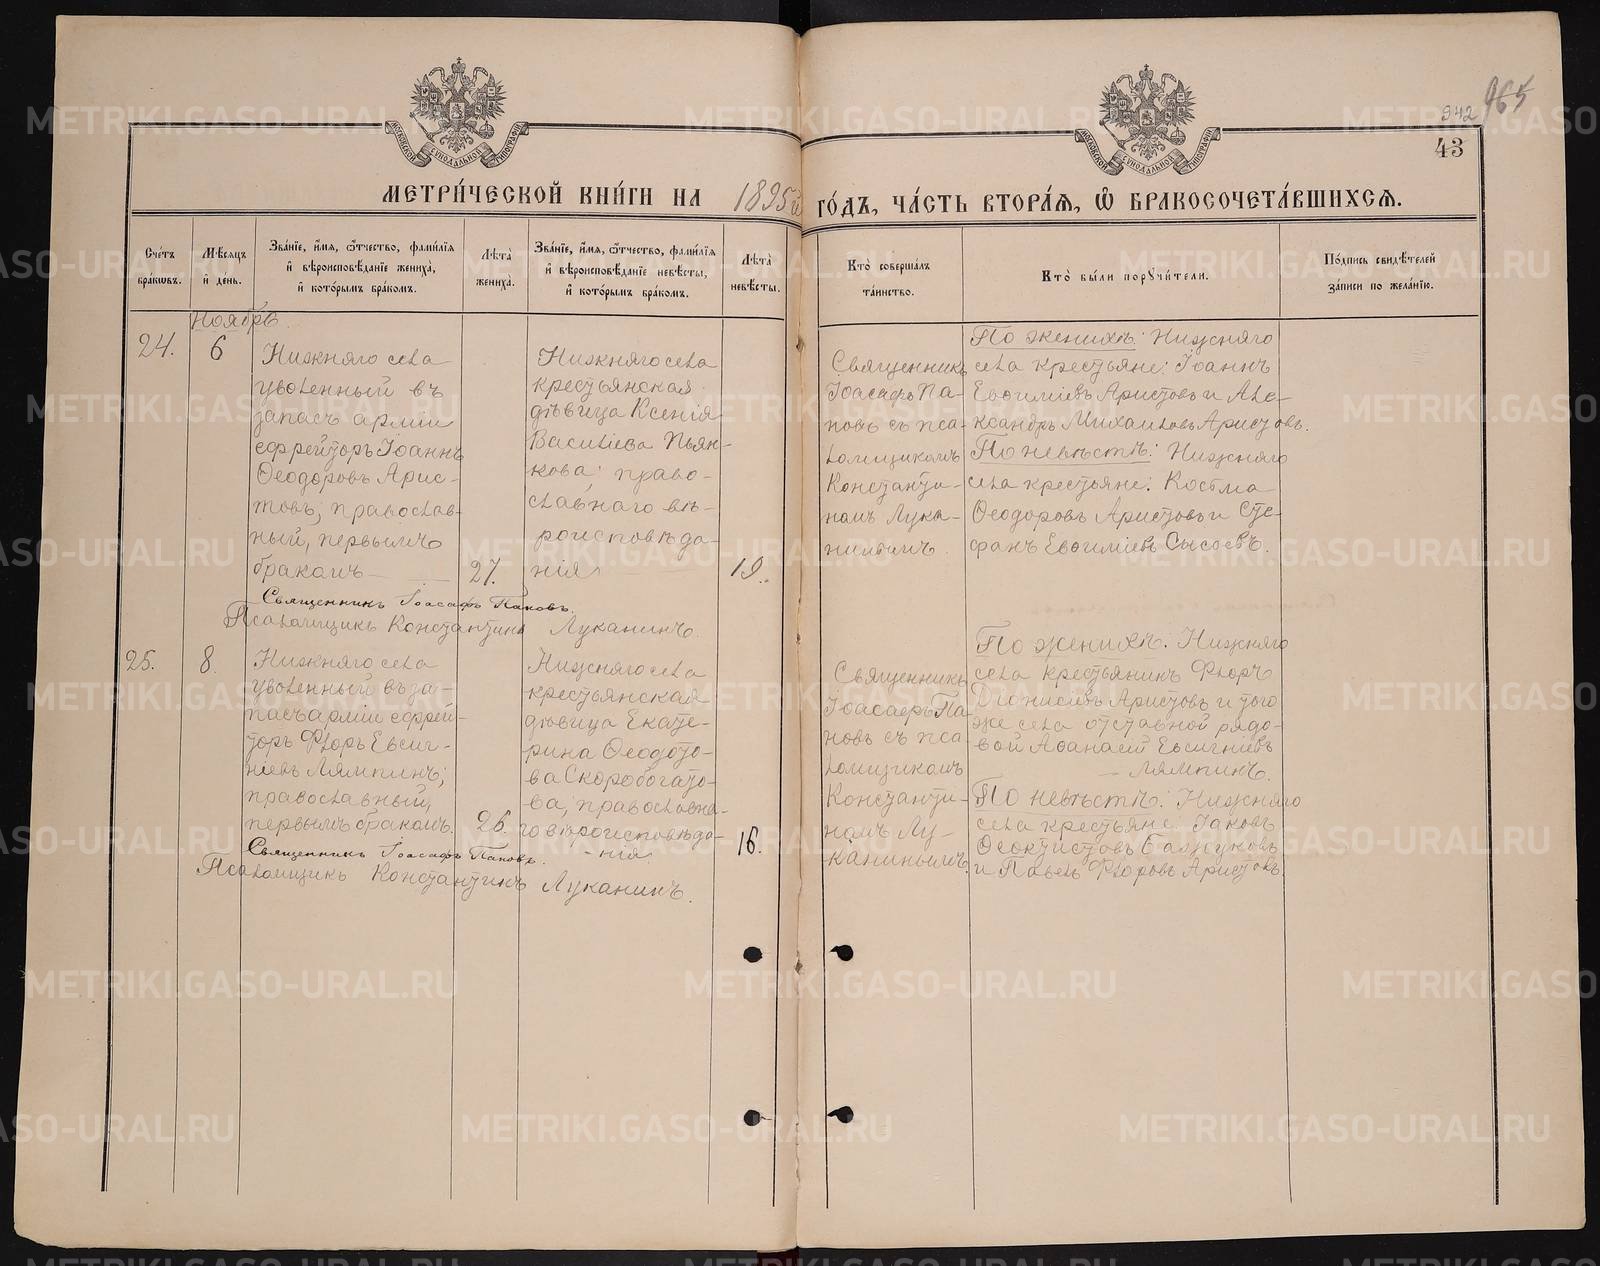 942 965
43
МОСКОВСКОЙ СѴНОДАЛЬНОЙ ТИПОГРАФІИ
МОСКОВСКОЙ СѴНОДАЛЬНОЙ ТИПОГРАФІИ
МЕТРИ́ЧЕСКОЙ КНИ́ГИ НА 1895й ГО́ДЪ, ЧА́СТЬ ВТОРА́Я, Ѡ БРАКОСОЧЕТА́ВШИХСЯ.
Сче́тъ бра́кѡвъ.
Мѣ́сяцъ и҆ де́нь.
Зва́нїе, и҆́мя, ѻ҆́тчество, фами́лїя
и҆ вѣроисповѣ́данїе жениха̀,
и҆ кото́рымъ бра́комъ.
Лѣ́та жениха̀.
Зва́нїе, и҆́мя, ѻ҆́тчество, фами́лїя
и҆ вѣроисповѣ́данїе невѣ́сты,
и҆ кото́рымъ бра́комъ.
Лѣ́та невѣ́сты.
Кто̀ соверша́лъ
та́инство.
Кто̀ бы́ли поручи́тели.
По́дпись свидѣ́телей
за́писи по жела́нїю.
Ноябрь.
24.
6
Нижняго села
уволенный въ
запасъ арміи
ефрейторъ Іоаннъ
Ѳеодоровъ Арис-
товъ, православ-
ный, первымъ
бракомъ
27.
Нижняго села
крестьянская
дѣвица Ксенія
Василіева Пьян-
кова; право-
славнаго вѣ-
роисповѣда-
нія
19.
Священникъ
Іоасафъ Па-
новъ съ пса-
ломщикомъ
Константи-
номъ Лука-
нинымъ.
По женихѣ: Нижняго
села крестьяне: Іоаннъ
Евѳиміевъ Аристовъ и Але-
ксандръ Михаиловъ Аристовъ.
По невѣстѣ: Нижняго
села крестьяне: Косьма
Ѳеодоровъ Аристовъ и Сте-
фанъ Евѳиміевъ Сысоевъ.
Священникъ Іоасафъ Пановъ.
Псаломщикъ Константинъ Луканинъ.
25.
8.
Нижняго села
уволенный въ за-
пасъ арміи ефрей-
торъ Флоръ Евсиг-
ніевъ Лямпинъ;
православный,
первымъ бракомъ.
26.
Нижняго села
крестьянская
дѣвица Екате-
рина Ѳеодото-
ва Скоробогато-
ва, православна-
го вѣроисповѣда-
нія
16.
Священникъ
Іоасафъ Па-
новъ съ пса
ломщикомъ
Константи-
номъ Лу-
канинымъ.
По женихѣ. Нижняго
села крестьянинъ Флоръ
Діонисіевъ Аристовъ и того
же села отставной рядо-
вой Аѳанасій Евсигніевъ
Лямпинъ.
По невѣстѣ: Нижняго
села крестьяне: Іаковъ
Ѳеоктистовъ Бажуковъ
и Павелъ Флоровъ Аристовъ
Священникъ Іоасафъ Пановъ.
Псаломщикъ Константинъ Луканинъ.
METRIKI.GASO-URAL.RU